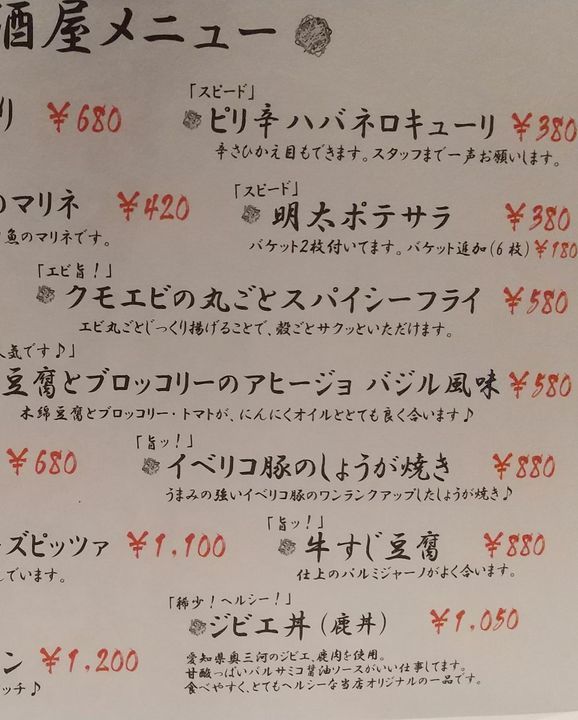 酒屋メニュー
「スピード」
り ￥680
ピリ辛ハバネロキューリ ￥380
辛さひかえ目もできます。スタッフまで一声お願いします。
「スピード」
のマリネ ￥420
明太ポテサラ ￥380
魚のマリネです。
バケット2枚付いてます。バケット追加(6枚)￥180
「エビ旨!」
クモエビの丸ごとスパイシーフライ ￥580
エビ丸ごとじっくり揚げることで、殻ごとサクッといただけます。
人気です♪」
豆腐とブロッコリーのアヒージョ バジル風味 ￥580
木綿豆腐とブロッコリー・トマトが、にんにくオイルととても良く合います♪
「旨ッ!」
￥680
イベリコ豚のしょうが焼き ￥880
うまみの強いイベリコ豚のワンランクアップしたしょうが焼き♪
「旨ッ!」
ーズピッツァ ￥1,100
牛すじ豆腐 ￥880
んでいます。
仕上のパルミジャーノがよく合います。
「稀少!ヘルシー!」
ジビエ丼(鹿丼) ￥1,050
ン ￥1,200
愛知県奥三河のジビエ、鹿肉を使用。
甘酸っぱいバルサミコ醤油ソースがいい仕事してます。
ッチ♪
食べやすく、とてもヘルシーな当店オリジナルの一品です。